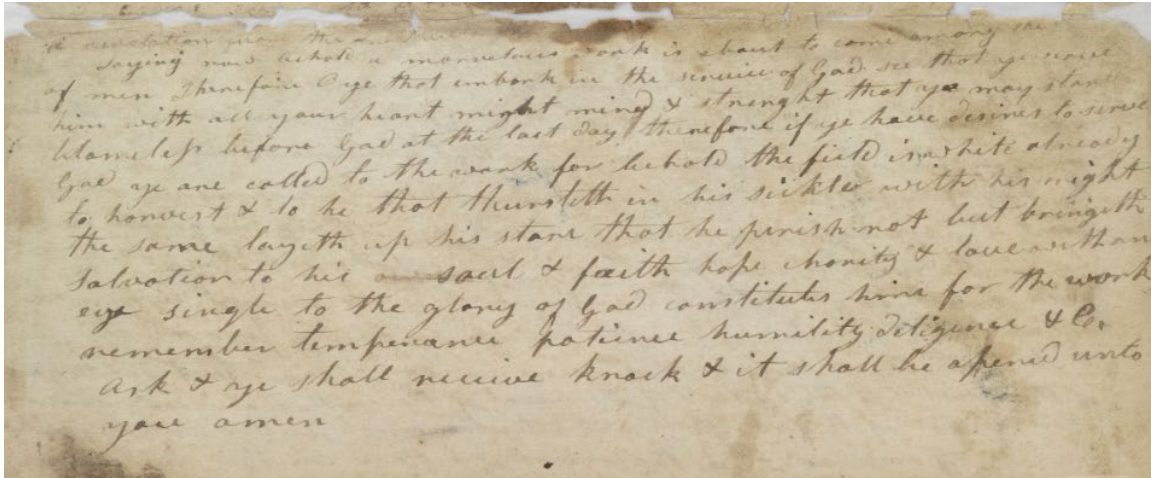 A revelation
Saying now behold a marvelous work is about to come among the
of men Therefore O ye that embark in the service of God see that ye serve
him with all your heart might mind & strenght that ye may stand
blameless before God at the last day therefore if ye have desires to serve
God ye are called to the work for behold the field is white already
to harvest & lo he that thursteth in his sickle with his might
the same layeth up his store that he perish not but bringeth
salvation to his soul & faith hope charity & love with an
eye single to the glory of God constitutes him for the work
remember temperance patience humility diligence & C.
Ask & ye shall receive knock & it shall be opened unto
you amen